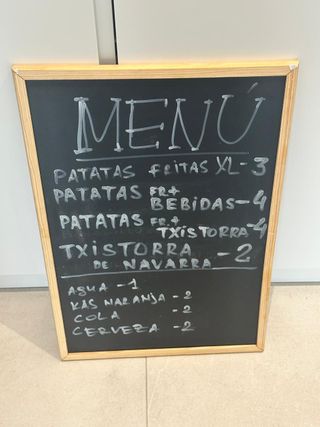 MENÚ
PATATAS FRITAS XL-3
PATATAS FR+ BEBIDAS-4
PATATAS FR.+ TXISTORRA-4
TXISTORRA DE NAVARRA - 2
AGUA - 1
KAS NARANJA - 2
COLA - 2
CERVEZA - 2